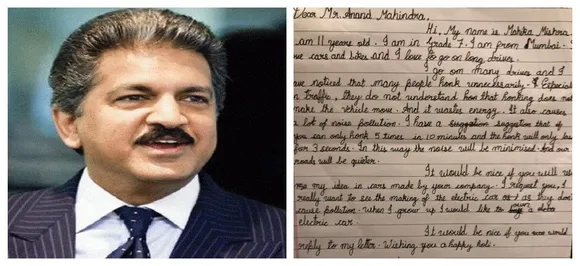 Dear Mr. Anand Mahindra,
Hi, My name is Mahika Mishra.
am 11 years old. I am in Grade 7. I am from Mumbai.
cars and bikes and I love to go on long drives.
I go on many drives and I
noticed that many people honk unnecessarily. Especial
traffic, they do not understand that honking does not
make the vehicle move. And it wastes energy. It also causes
lot of noise pollution. I have a suggestion that
you can only honk 5 times in 10 minutes and the honk will only
for 3 seconds. In this way the noise will be minimised. And our
roads will be quieter.
It would be nice if you will
my idea in cars made by your company. I request you, I
really want to see the making of the electric car as they don't
cause pollution. When I grow up I would like to own
electric car.
It would be nice if you
reply to my letter. Wishing you a happy holi.